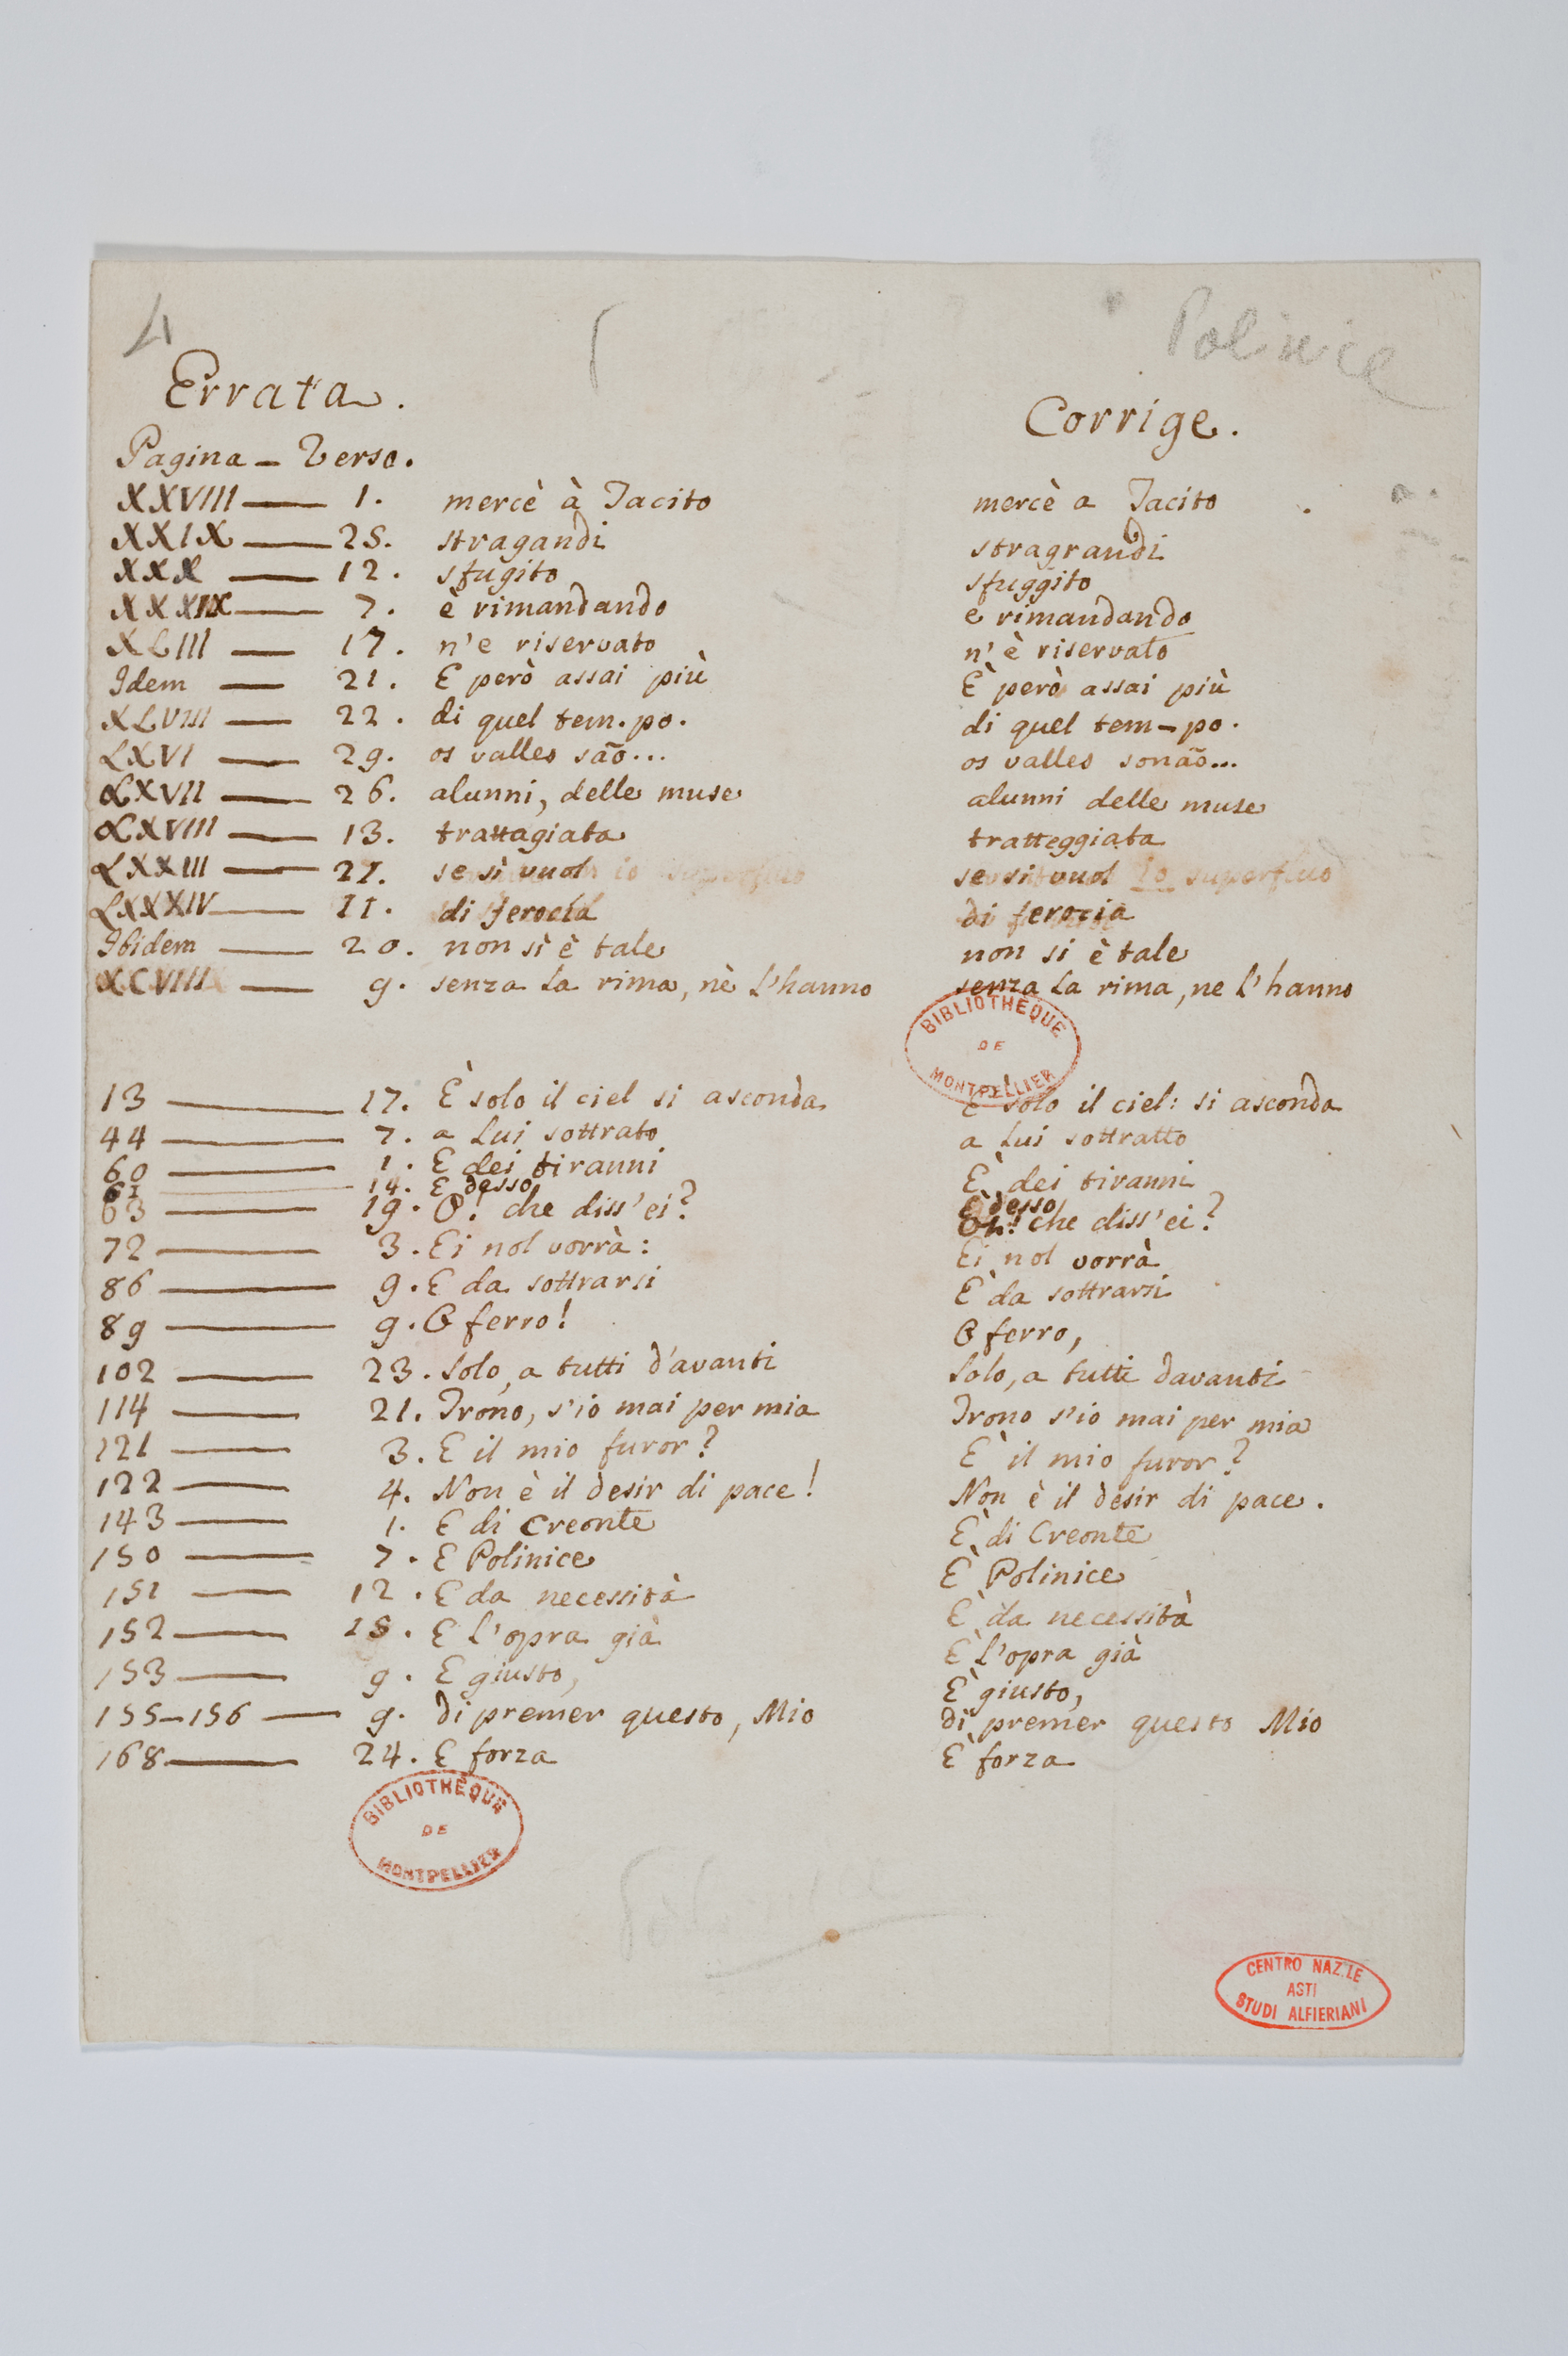 4 Polinice
Errata.
Corrige.
Pagina - Verso.
XXVIII — 1. mercè à Tacito mercè a Tacito
XXIX — 25. stragandi stragrandi
XXX — 12. sfugito sfuggito
XXXIX — 7. è rimandando e rimandando
XLIII — 17. n'e riservato n'è riservato
Idem — 21. E però assai più È però assai più
XLVIII — 22. di quel tem.po. di quel tem-po.
LXVI — 29. os valles são... os valles sonão...
LXVII — 26. alunni, delle muse alunni delle muse
LXVIII — 13. trattagiata tratteggiata
LXXIII — 27. se sì vuol io superfluo se si vuol lo superfluo
LXXXIV — 11. di ferocia di ferocia
Ibidem — 20. non sì è tale non si è tale
XCVIII — 9. senza la rima, nè l'hanno senza la rima, ne l'hanno
BIBLIOTHÈQUE DE MONTPELLIER
13 — 17. È solo il ciel si asconda E solo il ciel: si asconda
44 — 7. a lui sottrato a lui sottratto
60 — 1. E dei tiranni È dei tiranni
61 — 14. E desso È desso
63 — 19. O! che diss'ei? Oh! che diss'ei?
72 — 3. Ei nol vorrà: Ei nol vorrà
86 — 9. E da sottrarsi È da sottrarsi
89 — 9. O ferro! O ferro,
102 — 23. Solo, a tutti d'avanti Solo, a tutti davanti
114 — 21. Trono, s'io mai per mia Trono s'io mai per mia
121 — 3. E il mio furor? È il mio furor?
122 — 4. Non è il desir di pace! Non è il desir di pace.
143 — 1. E di Creonte È di Creonte
150 — 7. E Polinice È Polinice
151 — 12. E da necessità È da necessità
152 — 15. E l'opra già È l'opra già
153 — 9. E giusto, È giusto,
155-156 — 9. di premer questo, Mio di premer questo Mio
168 — 24. E forza È forza
BIBLIOTHÈQUE DE MONTPELLIER
CENTRO NAZ.LE
ASTI
STUDI ALFIERIANI